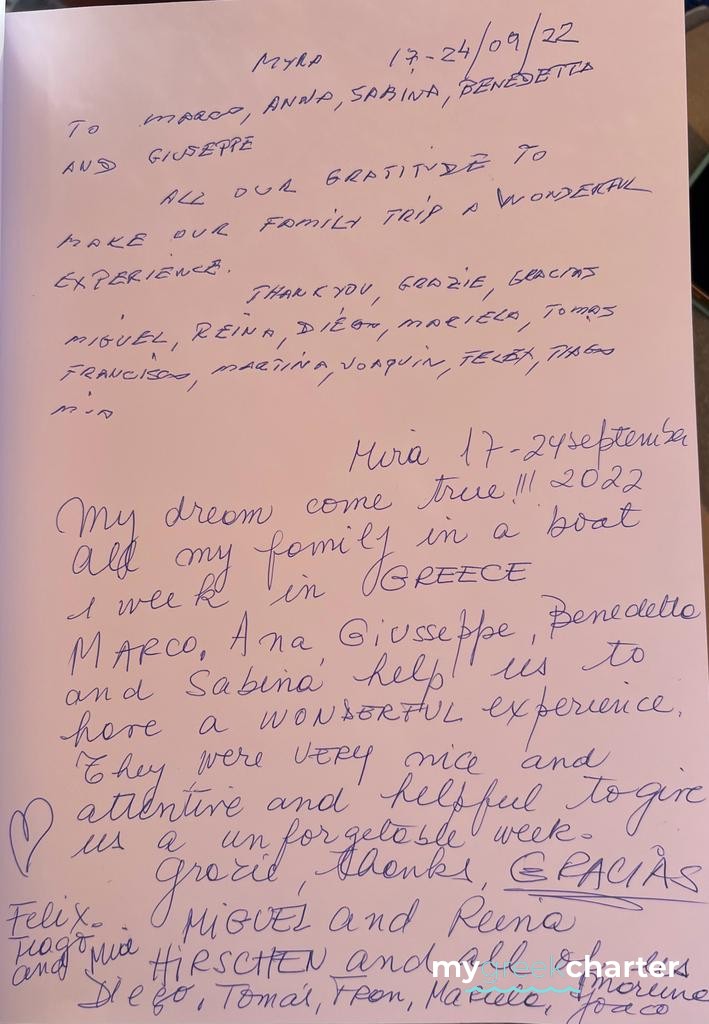 MYRA 17-24/09/22
TO MARCO, ANNA, SABINA, BENEDETTA
AND GIUSEPPE
ALL OUR GRATITUDE TO
MAKE OUR FAMILY TRIP A WONDERFUL
EXPERIENCE.
THANK YOU, GRAZIE, GRACIAS
MIGUEL, REINA, DIEGO, MARIELA, TOMAS
FRANCISCO, MARTINA, JOAQUIN, FELIX, TIAGO
MIA
Mira 17-24 september
My dream come true!!! 2022
All my family in a boat
1 week in GREECE
MARCO, Ana, Giusseppe, Benedetta
and Sabina help us to
have a WONDERFUL experience.
They were VERY nice and
attentive and helpful to give
us a unforgetable week.
Grazie, thanks, GRACIAS
Felix. MIGUEL and Reina
Tiago
and Mia HIRSCHEN and all of us
Diego, Tomas, Fran, Mariela,
Joaco
mygreekcharter